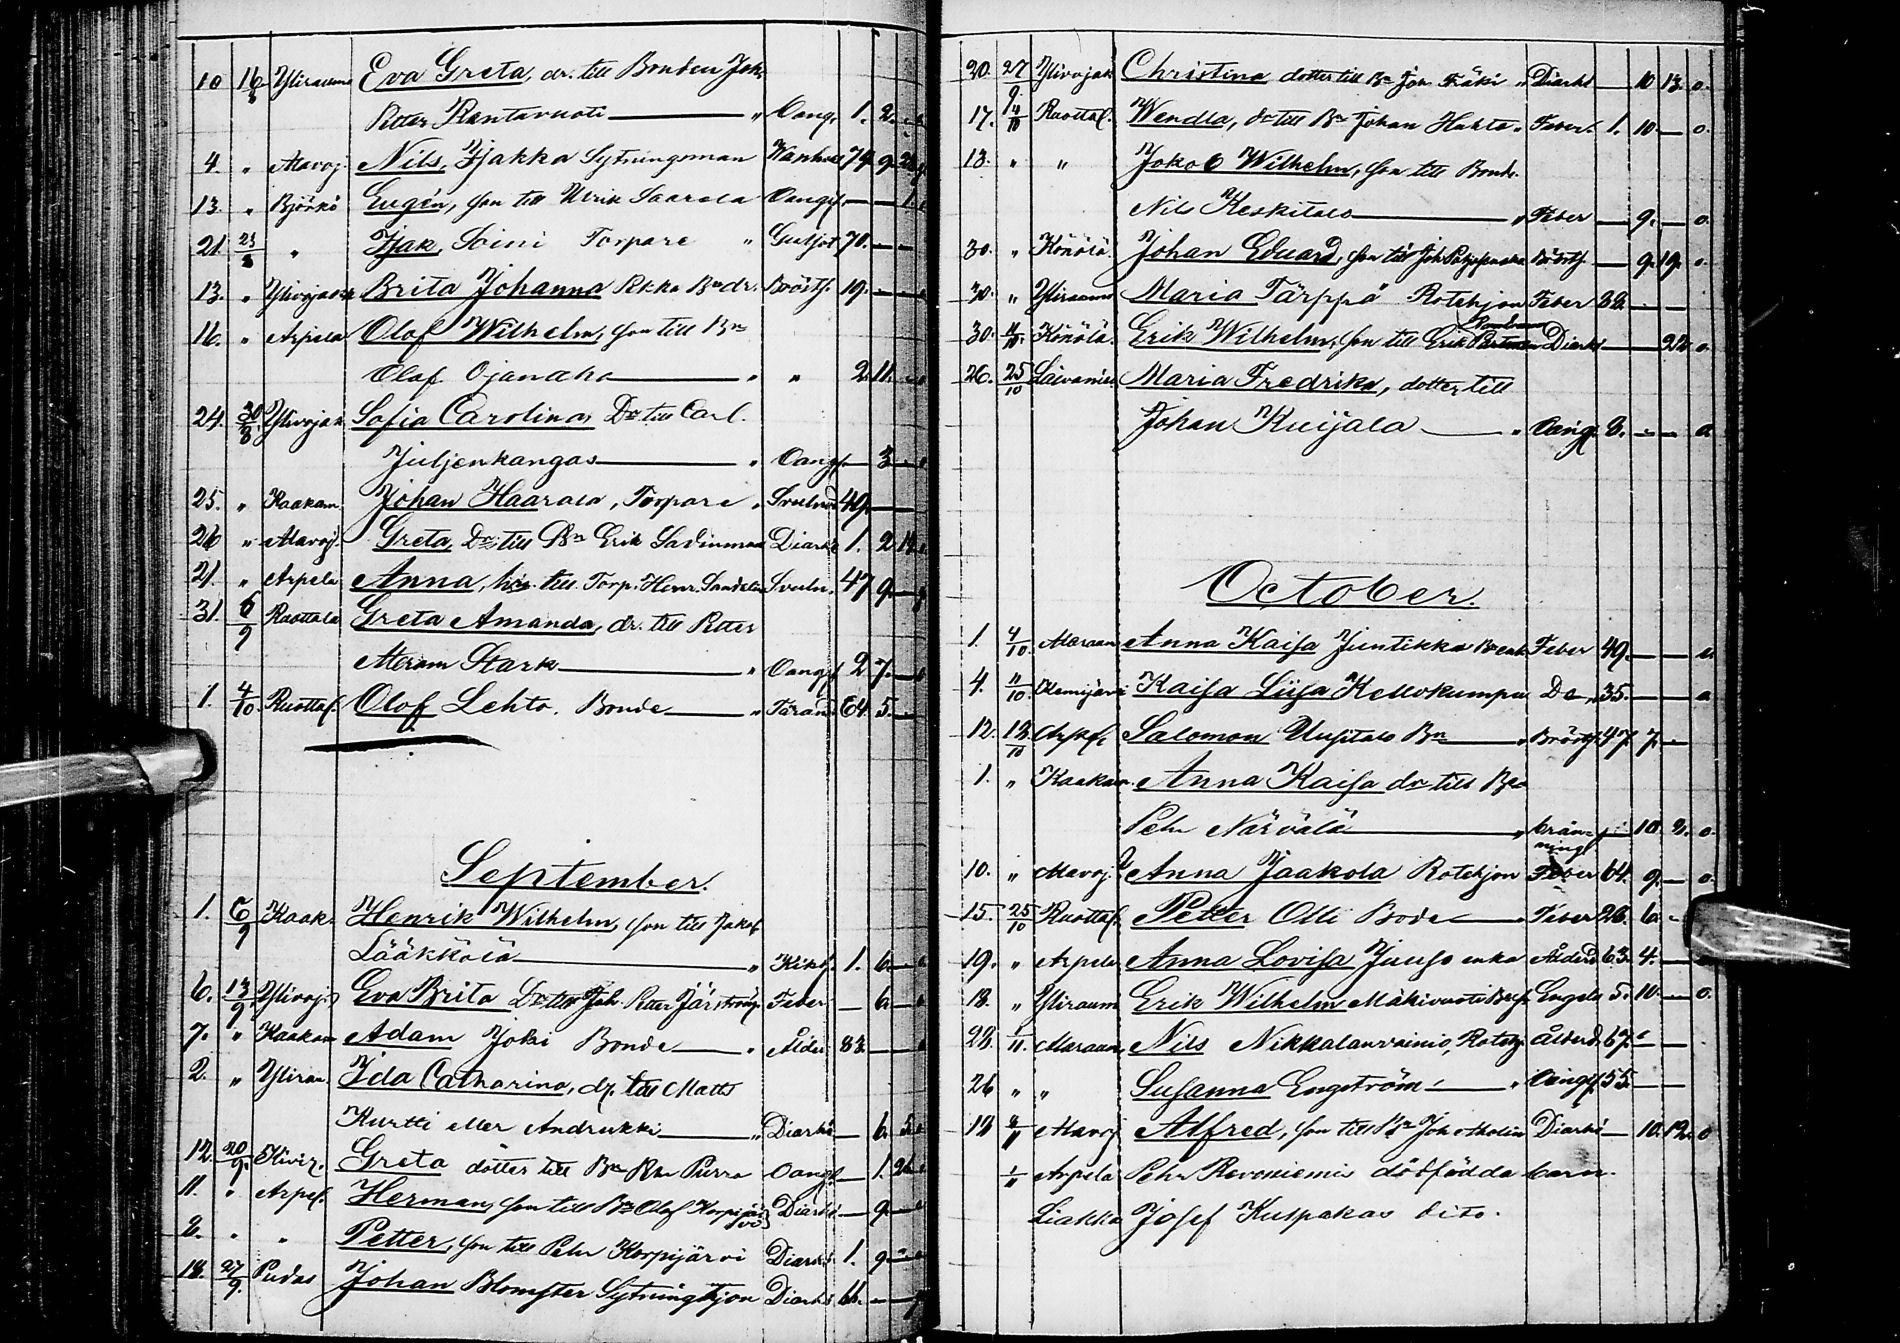 10 16/8 Yliraumo Eva Greta, dr. till Bonden Joh.
Petter Rantavuoti " Oang. 1. 2.
4. " Alavoj. Nils, Isakka Sytningsman 74 9
13. " Björkö Eugén, son till Ulrik Saarela Oangif. 1.
21. 23/8 " Isak, Soini Torpare " 70.
13. " Ylivojak. Brita Johanna Bndr. Bröstf. 19.
16. " Arpela Olof Wilhelm, son till Bn
Olof Ojanaho " " 2. 11.
24. 30/8 Ylivojak. Sofia Carolina, Dr till Carl.
Juljenkangas " Oangf. 3
25. " Kaakam Johan Haarala, Torpare " 49.
26 " Alavoj. Greta, Dr till Bn Erik Diarhé 1. 2
21. " Arpela Anna, hru. till Torp. Henr. Sandelin 47 9.
31. 6/9 Ruottala Greta Amanda, dr. till Petter
Stark " Oangif 2 7.
1. 4/10. Ruottal. Olof Lehto. Bonde " 64. 5.
September.
1. 6/9 Kaak. Henrik Wilhelm, son till Jakob
Lääkkölä " Kikh. 1. 6.
6. 13/9 Ylivoj. Eva Brita Dotter Joh. Petter Järström Feber 6.
7. " Kaakam Adam Joki Bonde " Ålder 83.
2. " Ylirau. Ida Catharina, dr. till Matts
Kurtti eller Andrukki " Diarhé 6. 5.
12. 20/9. Kivir. Greta dotter till Bn Per Purra Oangf. 1.
11. " Arpel. Herman, son till Bn Olof Korpijärvi Diarhé 9.
2. " " Petter, son till Pehr Korpijärvi Diarhé 1. 9.
18. 27/9. Pudas Johan Blomster Sytninghjon Diarhé
20. 27/9. Ylivojak Christina dotter till Bn Joh. Träki " Diarhé 10 13. o.
17. 14/10 Ruottal. Wendla, dr till Bn Johan Hahto " Feber. 1. 10. o.
13. " " Jakob Wilhelm, son till Bonde.
Nils Keskitalo " Feber 9. o.
30. " Könölä. Johan Eduard, son till Joh. Bröstf. 9. 19. o.
30. " Yliraumo Maria Tärppä Rotehjon Feber
30. 11/10. Könölä. Erik Wilhelm, son till Erik Diarhé 22 o.
26. 25/10 Laivaniem Maria Fredrika, dotter till
Johan Kuijala " Oangf. o
October.
1. 4/10. Alaraum Anna Kaisa Juntikka Bnenk. Feber 49.
4. 11/10. Kemijärvi Kaisa Liisa Kellokumpu Do " 35.
12. 12/10 Arpel. Salomon Uusitalo Bn " Bröstf. 47. 7.
1. " Kaakam. Anna Kaisa dr till Bn
Pehr Närvälä " kräm-ning 10 2. o.
10. " Alavoj. Anna Jaakola Rotehjon Feber 64. 9. o.
15. 25/10 Ruottal. Petter Olli Bode " Feber 26. 6.
19. " Arpela Anna Lovisa Juuso enka Ålderd. 63. 4.
13. " Yliraum Erik Wilhelm Mäkivuoti Engels 5. 10. o.
28. 1/11. Alaraum. Nils Nikkalanvainio, Rotehj. Ålderd. 67.
26 " " Susanna Engström " Oangif. 55.
12 8/11 Alavoj Alfred, son till Bn Joh. Molin Diarhé 10. 12. o
1/11 Arpela Pehr Revoniemis dödfödda barn.
Liakka Josef Kuspakas dito.